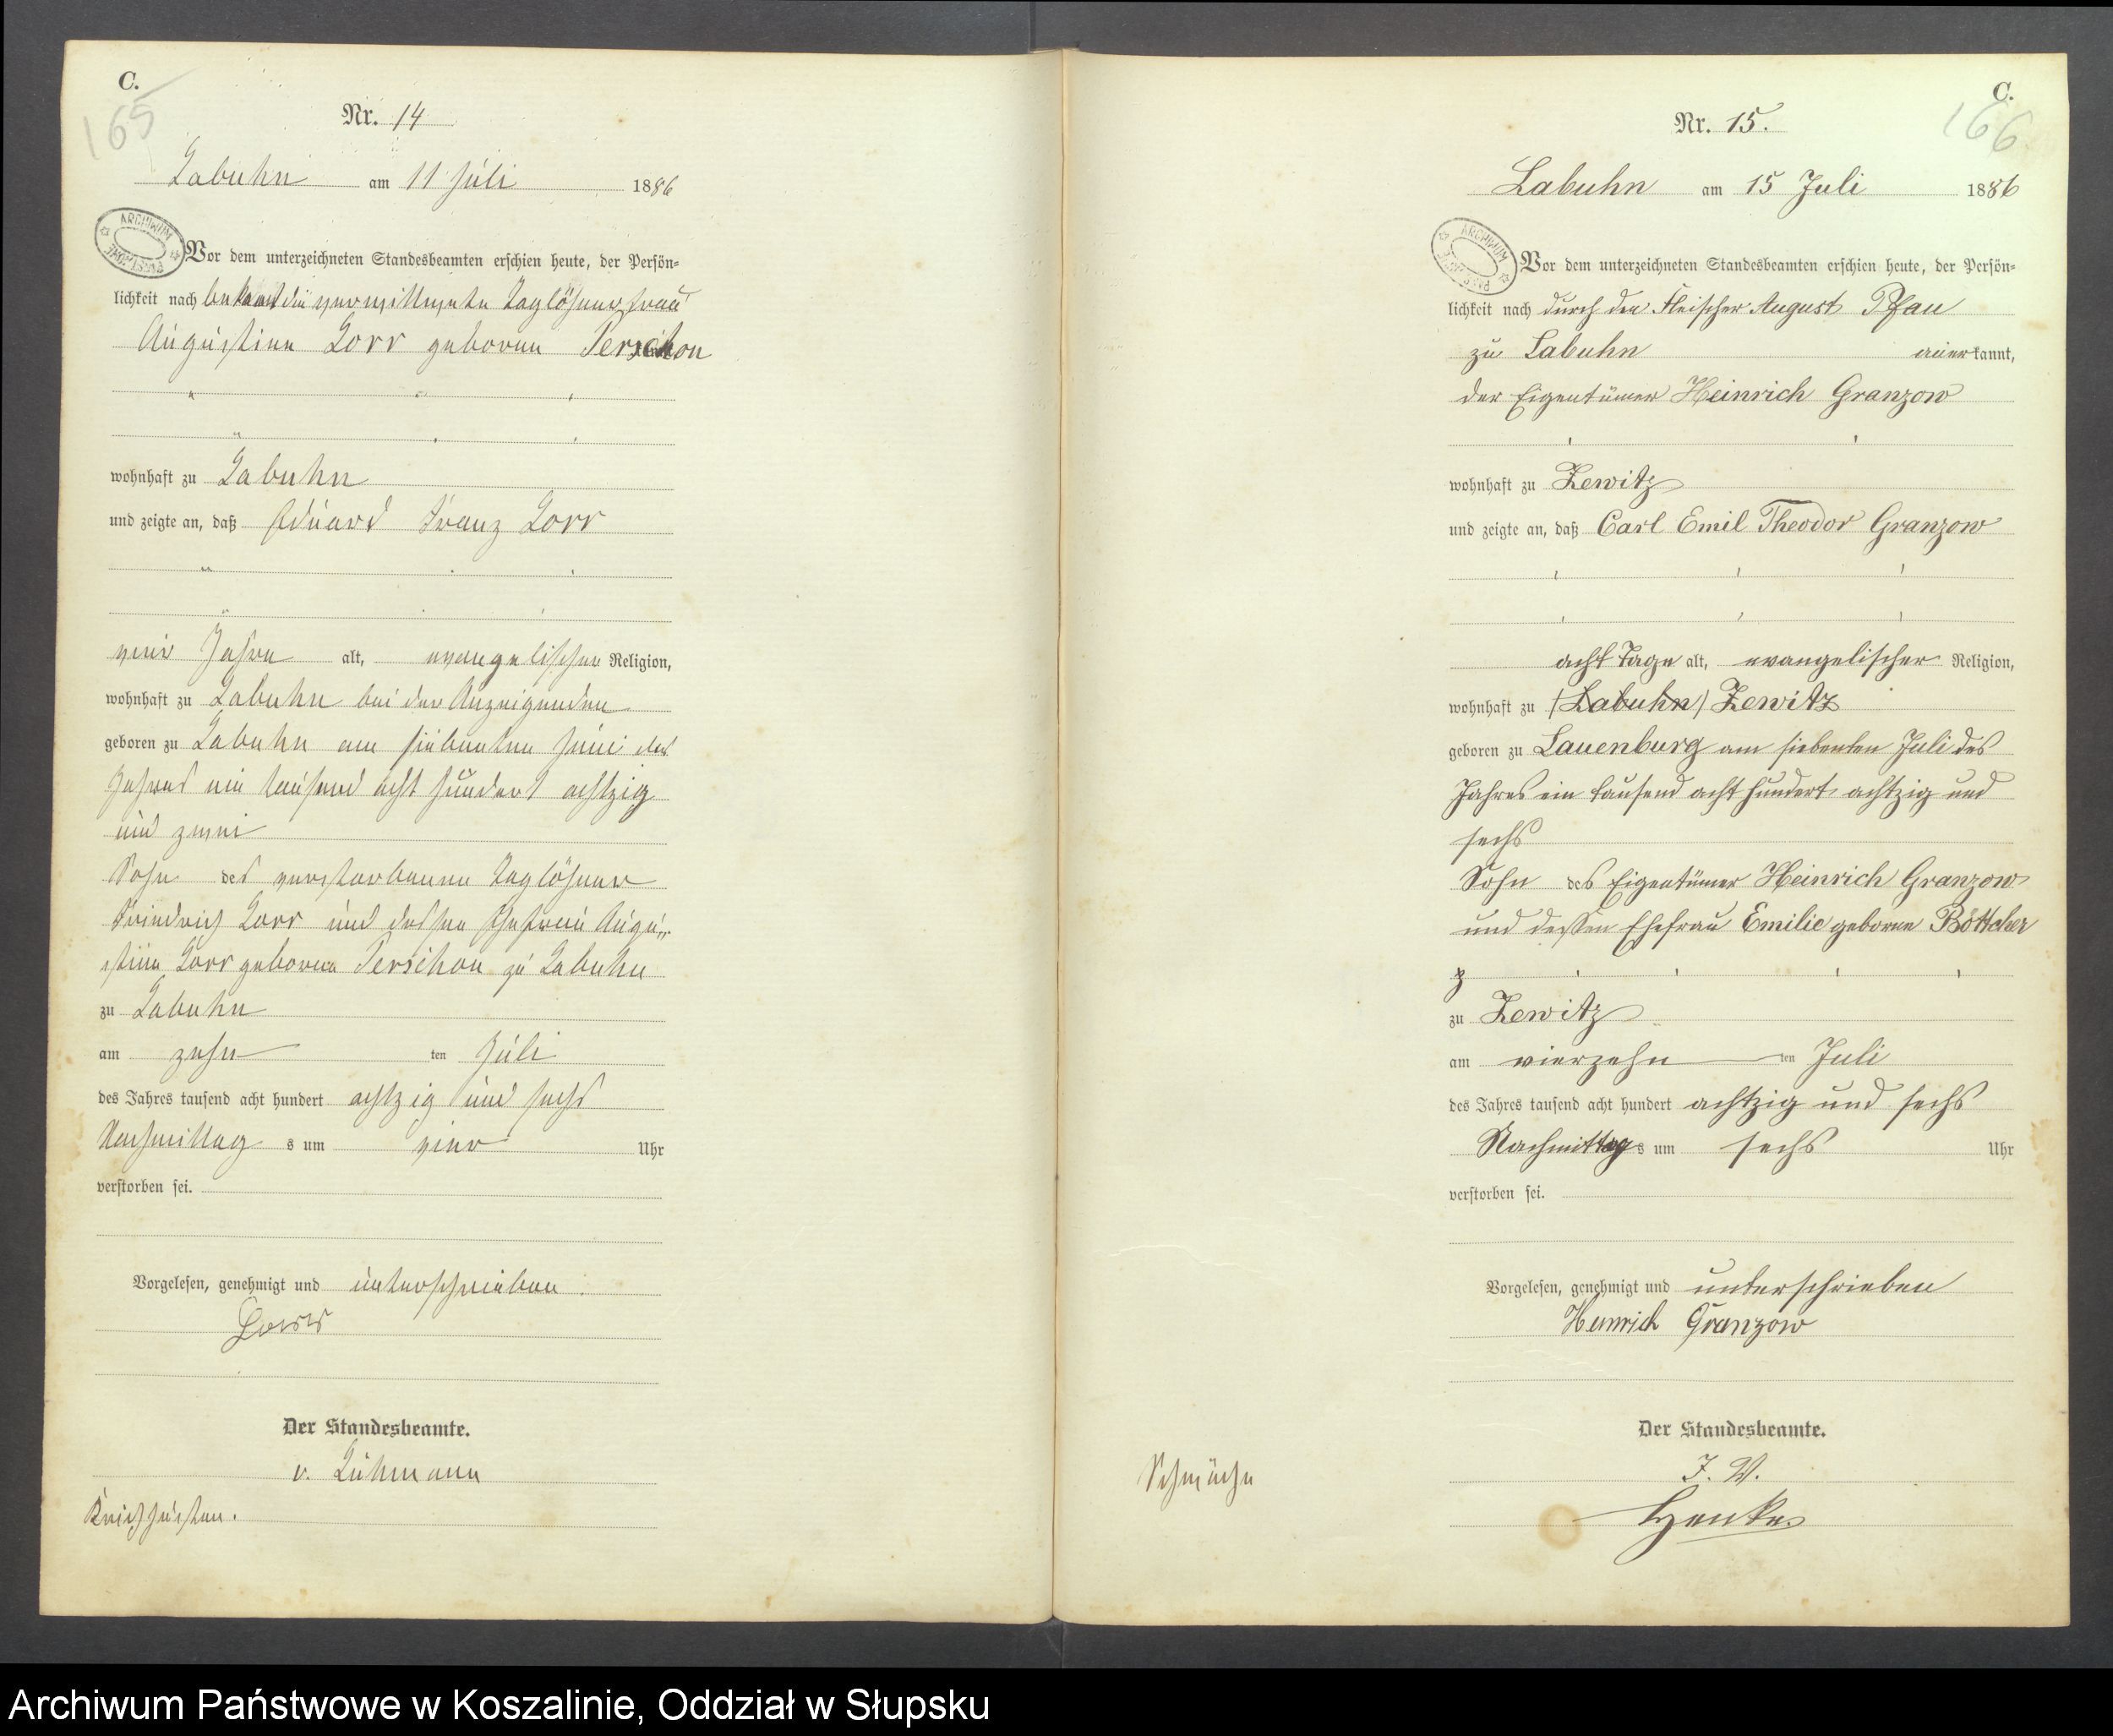 C.
165
Nr. 14
Labuhn am 11 Juli 1886
ARCHIWUM
Vor dem unterzeichneten Standesbeamten erschien heute, der Persön=
lichkeit nach bekannt die verwittwete Taglöhnerfrau
Augustine Lorr geborene Terschon
wohnhaft zu Labuhn
und zeigte an, daß Eduard Franz Lorr
vier Jahre alt, evangelischer Religion,
wohnhaft zu Labuhn bei der Anzeigenden
geboren zu Labuhn am siebenten Juni des
Jahres ein tausend acht hundert achtzig
und zwei
Sohn des verstorbenen Taglöhner
Friedrich Lorr und dessen Ehefrau Augu„
stine Lorr geborene Terschon zu Labuhn
zu Labuhn
am zehn ten Juli
des Jahres tausend acht hundert achtzig und sechs
Nachmittag s um vier Uhr
verstorben sei.
Vorgelesen, genehmigt und unterschrieben.
Lorr
Der Standesbeamte.
v. Lühmann
Keichhusten.
C.
166
Nr. 15.
Labuhn am 15 Juli 1886
ARCHIWUM
Vor dem unterzeichneten Standesbeamten erschien heute, der Persön=
lichkeit nach durch den Fleischer August Pfau
zu Labuhn anerkannt,
der Eigentümer Heinrich Granzow
wohnhaft zu Zewitz
und zeigte an, daß Carl Emil Theodor Granzow
acht Tage alt, evangelischer Religion,
wohnhaft zu (Labuhn) Zewitz
geboren zu Lauenburg am siebenten Juli des
Jahres ein tausend acht hundert achtzig und
sechs
Sohn des Eigentümer Heinrich Granzow
und dessen Ehefrau Emilie geborne Böttcher
z
zu Zewitz
am vierzehn ten Juli
des Jahres tausend acht hundert achtzig und sechs
Nachmittag s um sechs Uhr
verstorben sei.
Vorgelesen, genehmigt und unterschrieben
Heinrich Granzow
Der Standesbeamte.
J. V.
Henke
Schwäche
Archiwum Państwowe w Koszalinie, Oddział w Słupsku